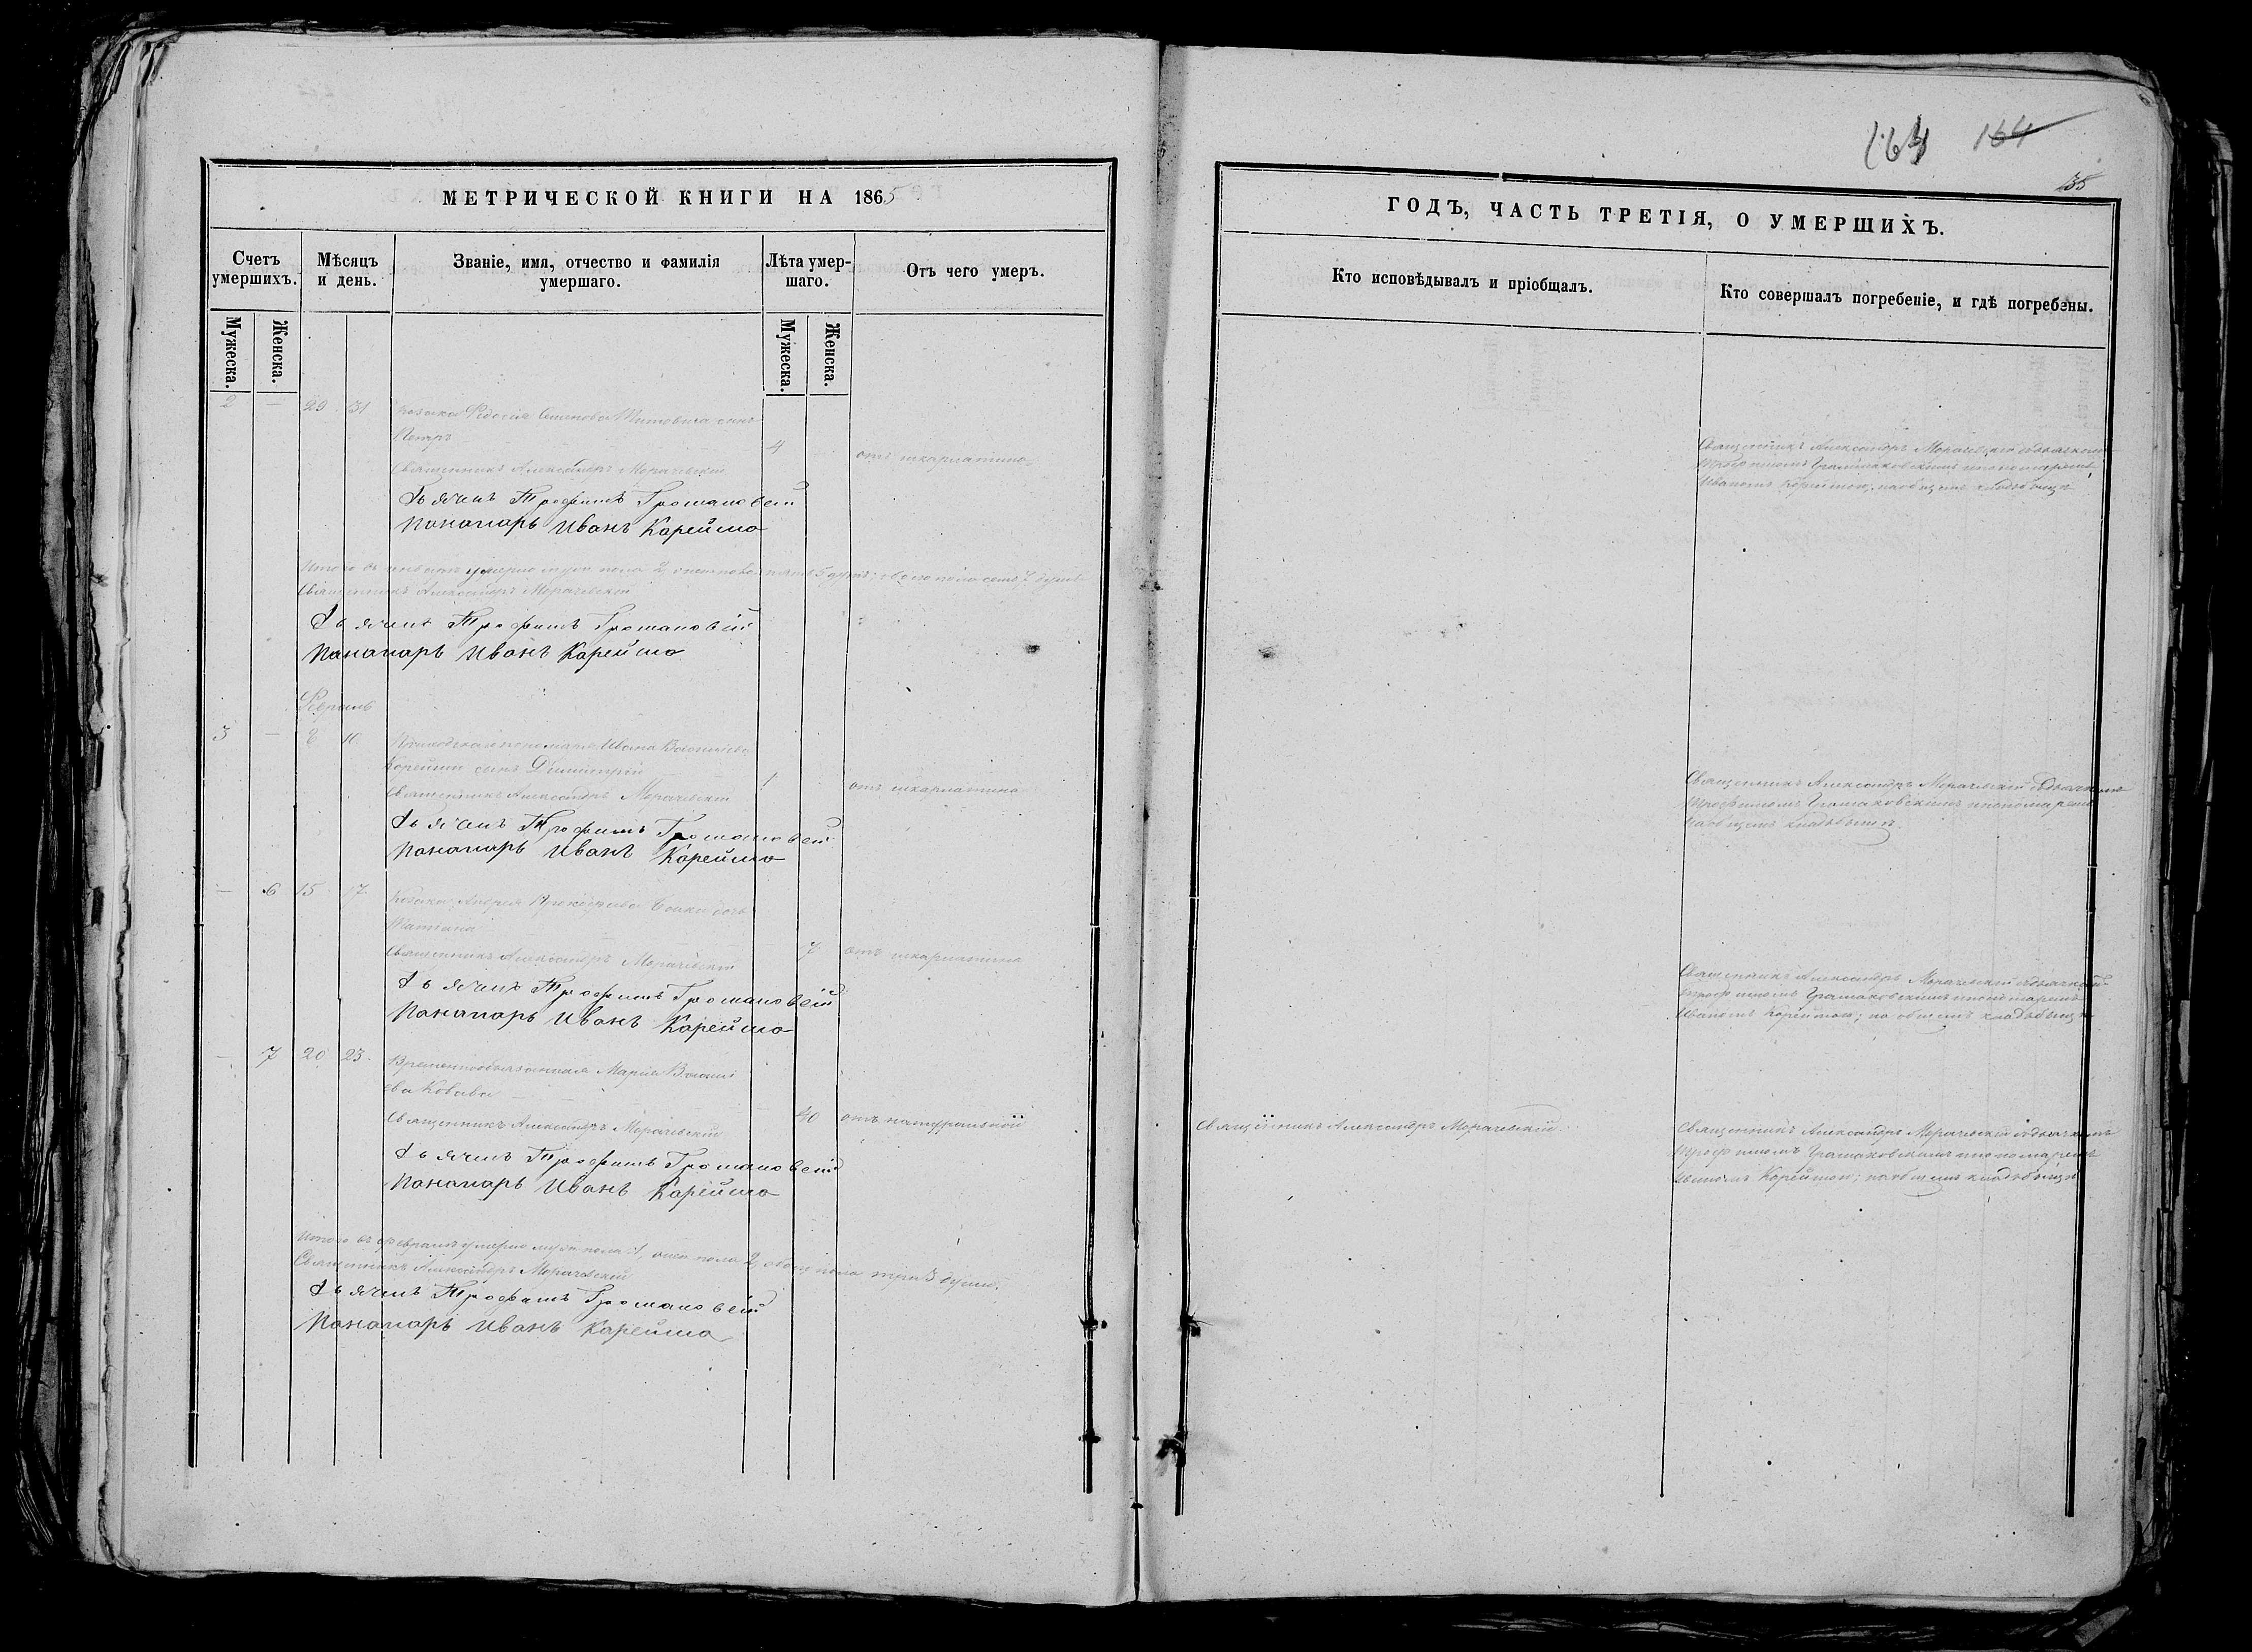 163 164
35
МЕТРИЧЕСКОЙ КНИГИ НА 1865
ГОДЪ, ЧАСТЬ ТРЕТІЯ, О УМЕРШИХЪ.
Счетъ умершихъ.
Мѣсяцъ и день.
Званіе, имя, отчество и фамилія умершаго.
Лѣта умер-
шаго.
Отъ чего умеръ.
Кто исповѣдывалъ и пріобщалъ.
Кто совершалъ погребеніе, и гдѣ погребены.
Мужеска.
Женска.
Мужеска.
Женска.
2 — 29 31 Козака Федосія Семенова сынъ
Петръ
4 отъ шкарлатины
Священникъ Александръ Морачевскій
Дьячекъ Трофимъ Громаковскій
Панамарь Иванъ Карейша
Священникъ Александръ Морачевскій съ дьячкомъ
Трофимомъ Громаковскимъ и пономаремъ
Иваномъ Корейшою; на общемъ кладбищѣ
Итого въ умерло муж. пола 2, 5 обоего пола семь 7 душъ
Священникъ Александръ Морачевскій
Дьячекъ Трофимъ Громаковскій
Панамарь Иванъ Карейша
Февраль
3 — 8 10 пономаря Ивана Васильева
Корейши сынъ Димитрій
1 отъ шкарлатины
Священникъ Александръ Морачевскій
Дьячекъ Трофимъ Громаковскій
Панамарь Иванъ Карейша
Священникъ Александръ Морачевскій съ дьячкомъ
Трофимомъ Громаковскимъ и пономаремъ
на общемъ кладбищѣ.
— 6 15 17 Козака Андрея Прокофіева дочь
Татіана
7 отъ шкарлатины
Священникъ Александръ Морачевскій
Дьячекъ Трофимъ Громаковскій
Панамарь Иванъ Карейша
Священникъ Александръ Морачевскій съ дьячкомъ
Трофимомъ Громаковскимъ и пономаремъ
Иваномъ Корейшою; на общемъ кладбищѣ
— 7 20 23 Временнообязанная Марія Василі
ева
40 отъ натуральной
Священникъ Александръ Морачевскій
Дьячекъ Трофимъ Громаковскій
Панамарь Иванъ Карейша
Священникъ Александръ Морачевскій
Священникъ Александръ Морачевскій съ дьячкомъ
Трофимомъ Громаковскимъ и пономаремъ
Иваномъ Корейшою; на общемъ кладбищѣ
Итого въ февралѣ умерло муж. пола 1, жен. пола 2, обоего пола три 3 души.
Священникъ Александръ Морачевскій
Дьячекъ Трофимъ Громаковскій
Панамарь Иванъ Карейша